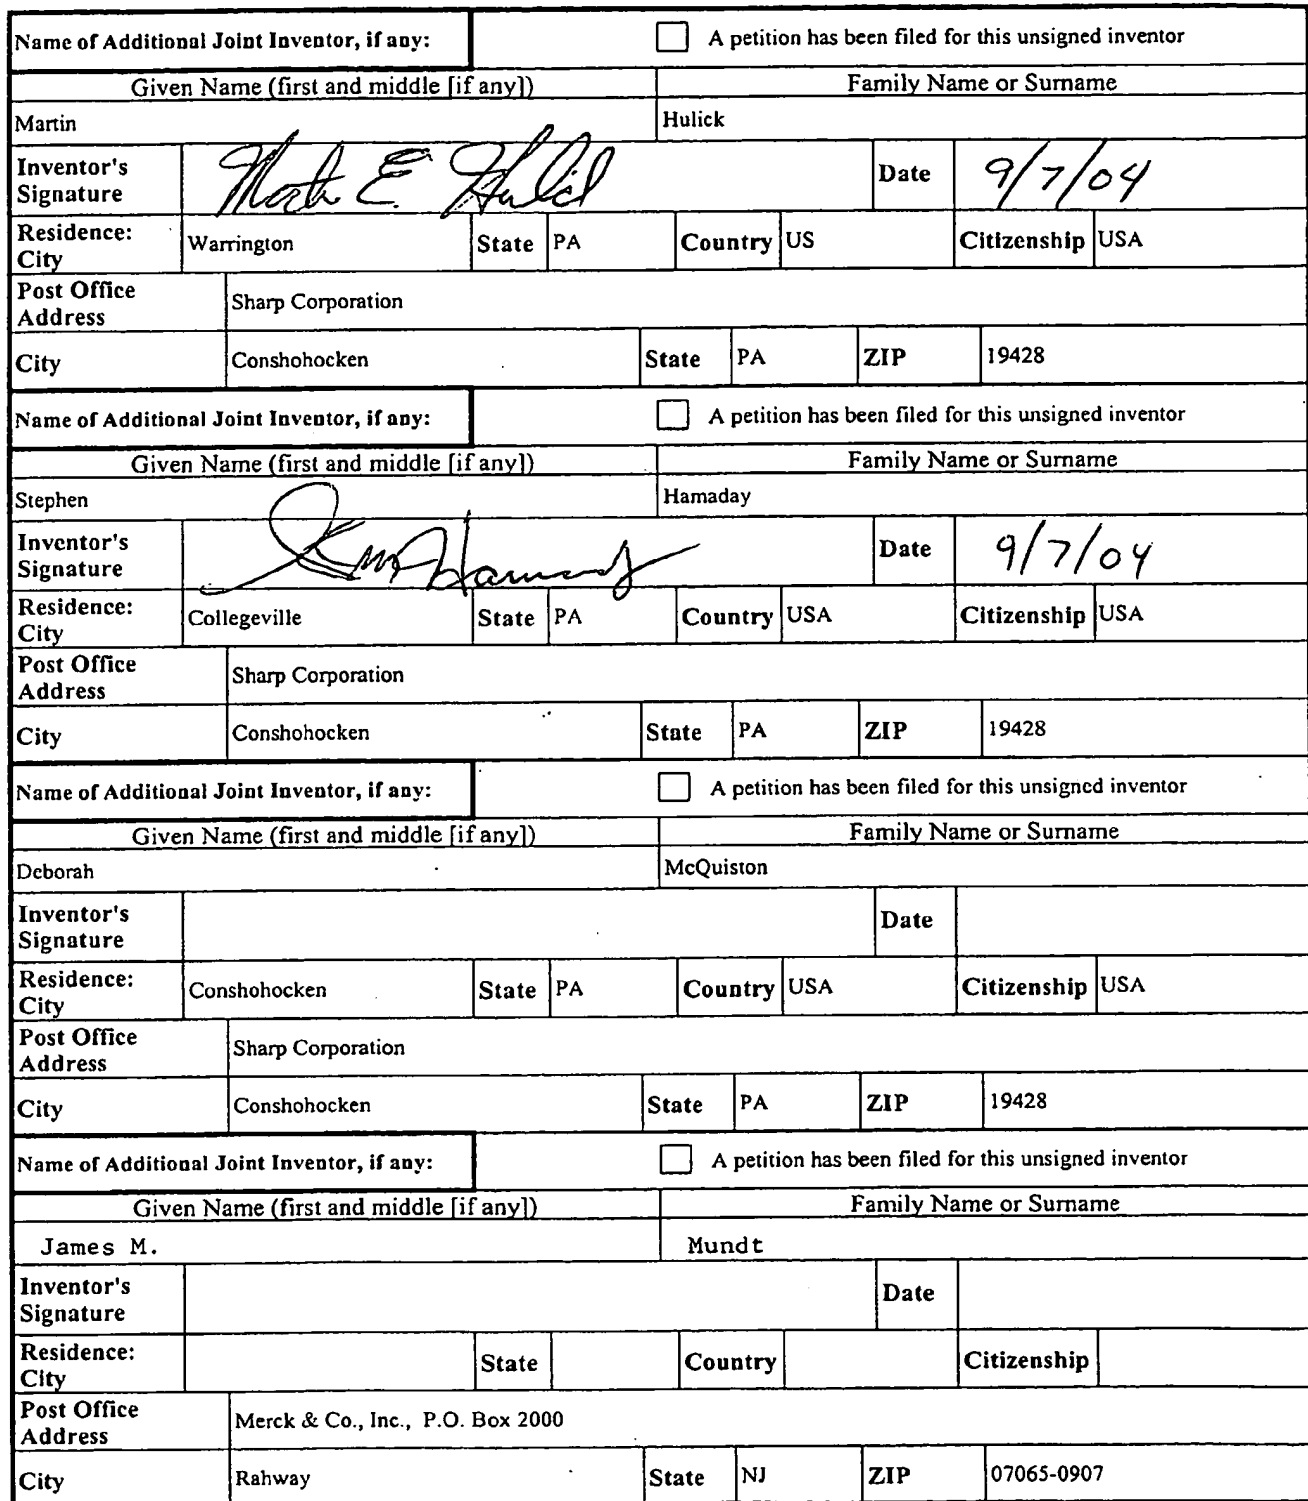 Name of Additional Joint Inventor, if any: A petition has been filed for this unsigned inventor
Given Name (first and middle [if any]) Family Name or Surname
Martin Hulick
Inventor's Signature E. Date 9/7/04
Residence: City Warrington State PA Country US Citizenship USA
Post Office Address Sharp Corporation
City Conshohocken State PA ZIP 19428
Name of Additional Joint Inventor, if any: A petition has been filed for this unsigned inventor
Given Name (first and middle [if any]) Family Name or Surname
Stephen Hamaday
Inventor's Signature Date 9/7/04
Residence: City Collegeville State PA Country USA Citizenship USA
Post Office Address Sharp Corporation
City Conshohocken State PA ZIP 19428
Name of Additional Joint Inventor, if any: A petition has been filed for this unsigned inventor
Given Name (first and middle [if any]) Family Name or Surname
Deborah McQuiston
Inventor's Signature Date
Residence: City Conshohocken State PA Country USA Citizenship USA
Post Office Address Sharp Corporation
City Conshohocken State PA ZIP 19428
Name of Additional Joint Inventor, if any: A petition has been filed for this unsigned inventor
Given Name (first and middle [if any]) Family Name or Surname
James M. Mundt
Inventor's Signature Date
Residence: City State Country Citizenship
Post Office Address Merck & Co., Inc., P.O. Box 2000
City Rahway State NJ ZIP 07065-0907